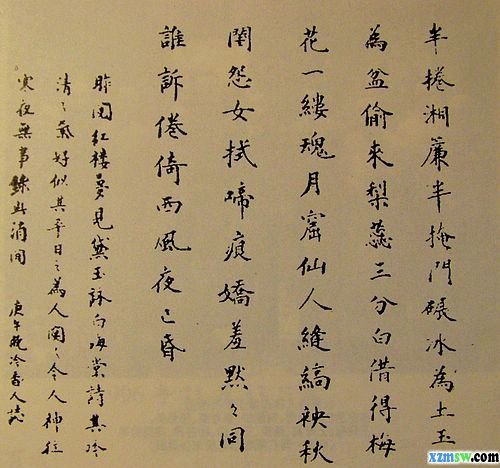 半捲湘簾半掩門碾冰為土玉
為盆偷來梨蕊三分白借得梅
花一縷魂月窟仙人縫縞袂秋
閨怨女拭啼痕嬌羞默々同
誰訴倦倚西風夜已昏
昨閱紅楼夢見黛玉詠白海棠詩其冷
清之氣好似其平日之為人閱之令人神往
寒夜無事錄此消閒 庚午晚冷香人
xzmsw.com